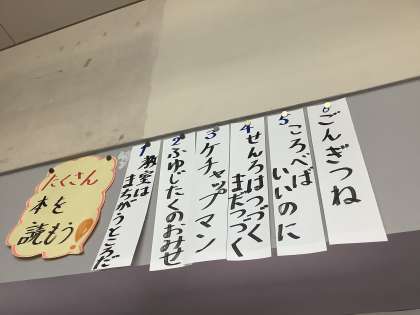 たくさん
本を
読もう
1
教室は
まちがうところだ
2
ふゆじたくのおみせ
3
ケチャップマン
4
せんろはつづく
まだつづく
5
ころべば
いいのに
6
ごんぎつね